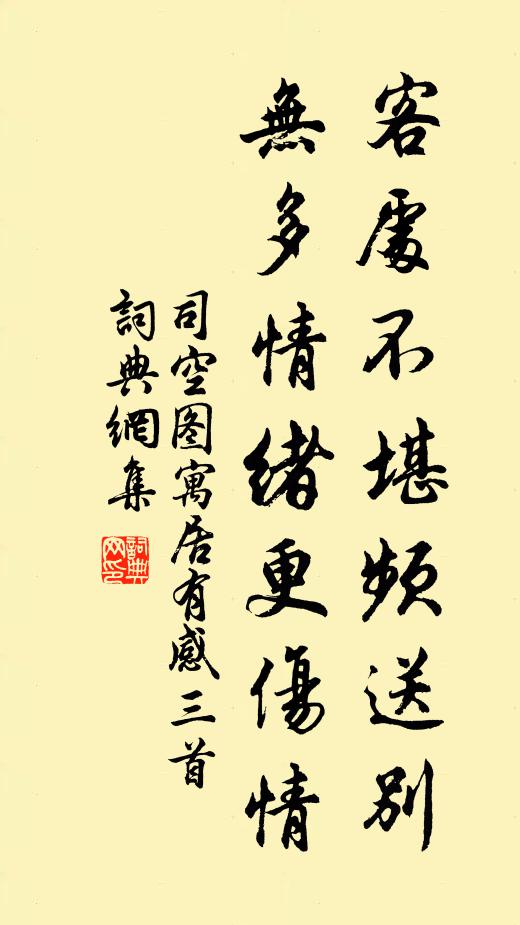 客處不堪頻送別
無多情緒更傷情
司空图寓居有感三首
詞典網集
詞典網印